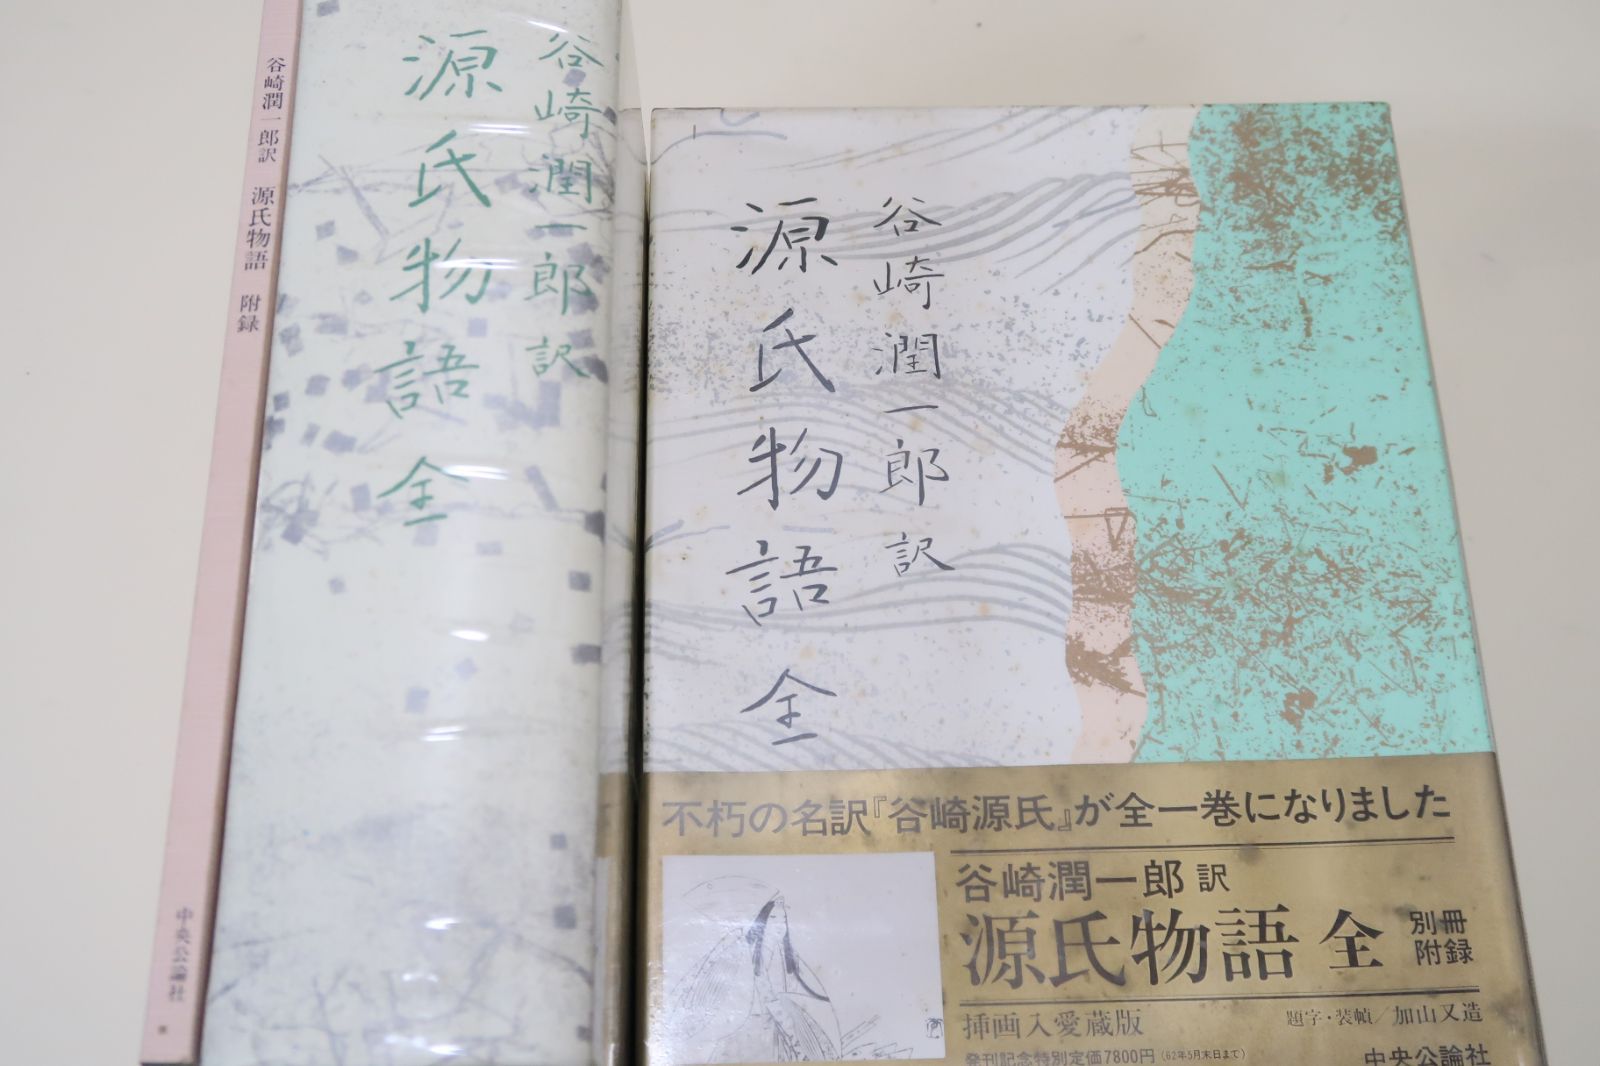 谷崎潤一郎訳 源氏物語 附録
中央公論社
谷崎潤一郎訳
源氏物語 全
谷崎潤一郎訳
源氏物語 全
不朽の名訳『谷崎源氏』が全一巻になりました
谷崎潤一郎 訳
源氏物語 全
別冊
附録
挿画入愛蔵版
題字・装幀/加山又造
発刊記念特別定価7800円(62年5月末日まで)
中央公論社